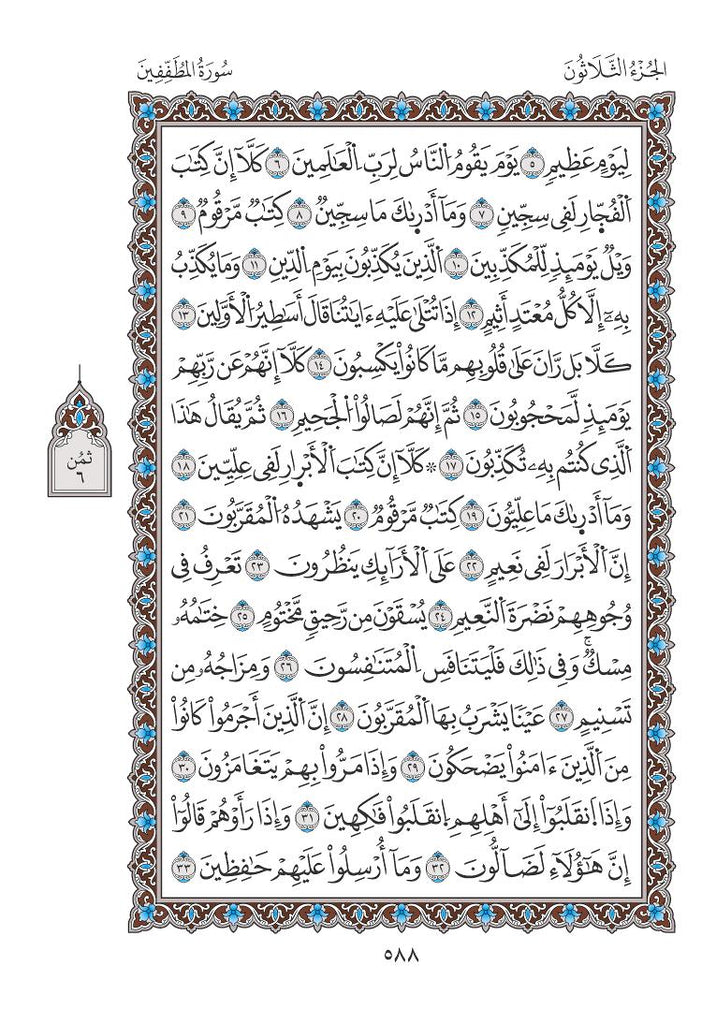 الجُزْءُ الثَّلَاثُونَ
سُورَةُ المُطَفِّفِينَ
لِيَوْمٍ عَظِيمٖ ٥ يَوْمَ يَقُومُ اُ۬لنَّاسُ لِرَبِّ اِ۬لْعَٰلَمِينَ ٦ كَلَّآ إِنَّ كِتَٰبَ
اَ۬لْفُجّ۪ارِ لَفِے سِجِّينٖ ٧ وَمَآ أَدْر۪ىٰكَ مَا سِجِّينٞ ٨ كِتَٰبٞ مَّرْقُومٞ ٩
وَيْلٞ يَوْمَئِذٖ لِّلْمُكَذِّبِينَ ١٠ اَ۬لَّذِينَ يُكَذِّبُونَ بِيَوْمِ اِ۬لدِّينِ ١١ وَمَا يُكَذِّبُ
بِهِۦٓ إِلَّا كُلُّ مُعْتَدٍ أَثِيمٍ ١٢ إِذَا تُتْلَىٰ عَلَيْهِ ءَايَٰتُنَا قَالَ أَسَٰطِيرُ اُ۬لْأَوَّلِينَ ١٣
كَلَّا بَل رَّانَ عَلَىٰ قُلُوبِهِم مَّا كَانُواْ يَكْسِبُونَ ١٤ كَلَّآ إِنَّهُمْ عَن رَّبِّهِمْ
يَوْمَئِذٖ لَّمَحْجُوبُونَ ١٥ ثُمَّ إِنَّهُمْ لَصَالُواْ اُ۬لْجَحِيمِ ١٦ ثُمَّ يُقَالُ هَٰذَا
اَ۬لَّذِے كُنتُم بِهِۦ تُكَذِّبُونَ ١٧ ۞ كَلَّآ إِنَّ كِتَٰبَ اَ۬لْأَبْر۪ارِ لَفِے عِلِّيِّينَ ١٨
وَمَآ أَدْر۪ىٰكَ مَا عِلِّيُّونَ ١٩ كِتَٰبٞ مَّرْقُومٞ ٢٠ يَشْهَدُهُ اُ۬لْمُقَرَّبُونَ ٢١
إِنَّ اَ۬لْأَبْرَارَ لَفِے نَعِيمٍ ٢٢ عَلَى اَ۬لْأَرَآئِكِ يَنظُرُونَ ٢٣ تَعْرِفُ فِے
وُجُوهِهِمْ نَضْرَةَ اَ۬لنَّعِيمِ ٢٤ يُسْقَوْنَ مِن رَّحِيقٖ مَّخْتُومٍ ٢٥ خِتَٰمُهُۥ
مِسْكٞۚ وَفِے ذَٰلِكَ فَلْيَتَنَافَسِ اِ۬لْمُتَنَٰفِسُونَ ٢٦ وَمِزَاجُهُۥ مِن
تَسْنِيمٍ ٢٧ عَيْنٗا يَشْرَبُ بِهَا اَ۬لْمُقَرَّبُونَ ٢٨ إِنَّ اَ۬لَّذِينَ أَجْرَمُواْ كَانُواْ
مِنَ اَ۬لَّذِينَ ءَامَنُواْ يَضْحَكُونَ ٢٩ وَإِذَا مَرُّواْ بِهِمْ يَتَغَامَزُونَ ٣٠
وَإِذَا اَ۪نقَلَبُوٓاْ إِلَىٰٓ أَهْلِهِمِ اِ۪نقَلَبُواْ فَٰكِهِينَ ٣١ وَإِذَا رَأَوْهُمْ قَالُوٓاْ
إِنَّ هَٰٓؤُلَآءِ لَضَآلُّونَ ٣٢ وَمَآ أُرْسِلُواْ عَلَيْهِمْ حَٰفِظِينَ ٣٣
ثُمُن
٦
٥٨٨